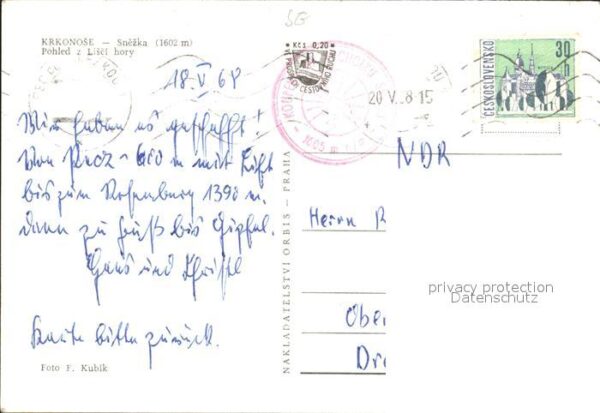 SB
KRKONOŠE — Sněžka (1602 m)
Pohled z Liščí hory
Kčs 0,20
V PROSPĚCH CESTOVNÍHO RUCHU
30 h
ČESKOSLOVENSKO
18. V 68
20 V. 8-15
1605 m
Wir haben es geschafft!
Von Pecz ~ 600 m mit Lift
bis zum Rosenburg 1390 m.
dann zu Fuß bis Gipfel.
Hans und Christl
Karte bitte zurück.
NDR
Herrn R
Ober
Dre
privacy protection
Datenschutz
NAKLADATELSTVÍ ORBIS — PRAHA
Foto F. Kubík